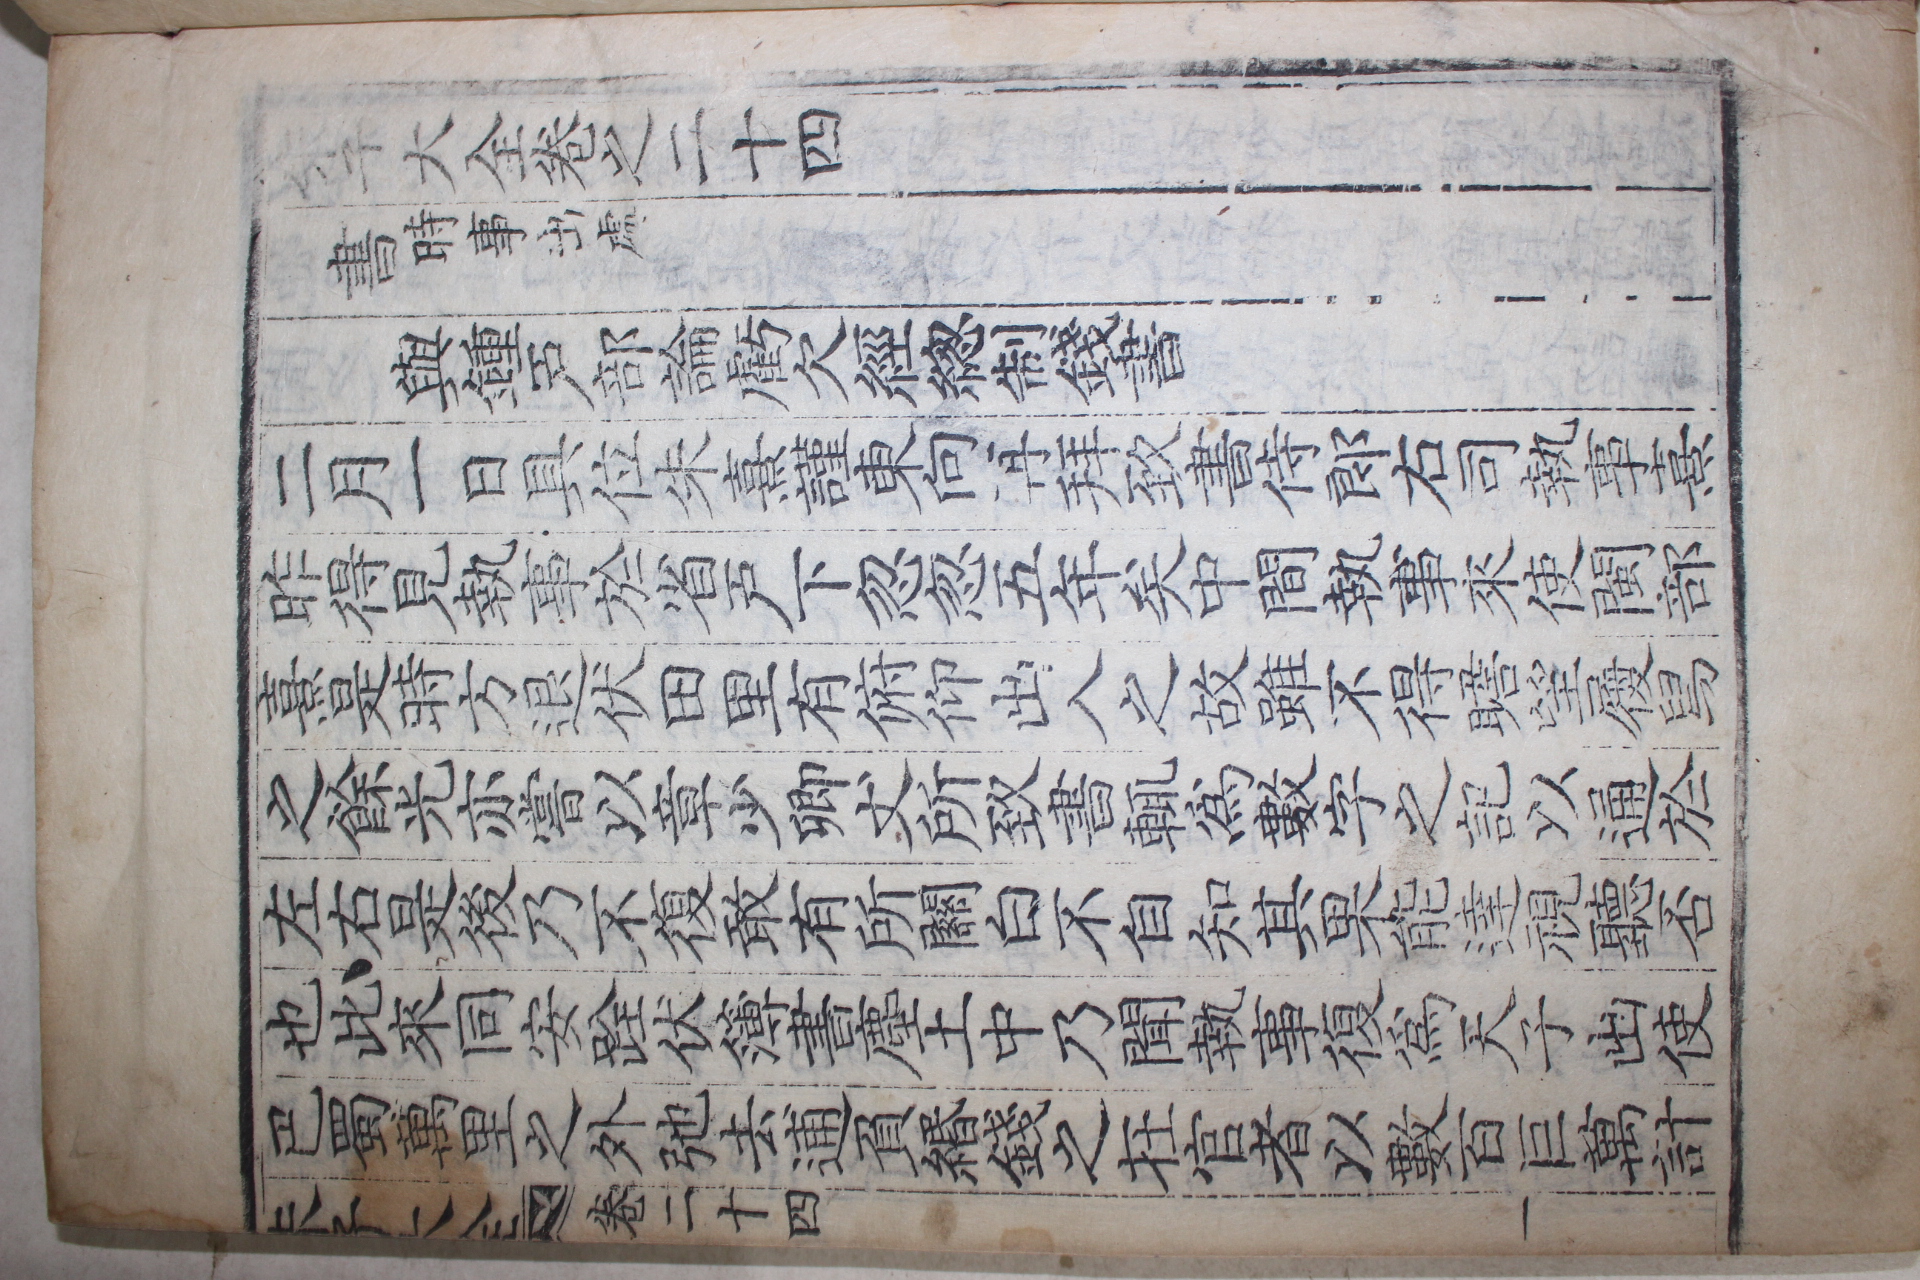 朱子大全卷之二十四
書時事出處
與鍾戶部論虧欠經總制錢書
二月一日具位朱熹謹東向再拜致書侍郎右司執事熹
昨得見執事於省戶下忽忽五年矣中間執事來使閩部
熹是時方退伏田里有俯仰出入之故雖不得瞻望履舄
之餘光亦嘗以章少卿丈所致書輒爲數字之記以通於
左右是後乃不復敢有所關白不自知其果能達視聽否
也此來同安跧伏簿書塵土中乃聞執事復爲天子出使
巴蜀萬里之外弛去逋負緡錢之在官者以數百巨萬計
朱子大全 卷二十四 一